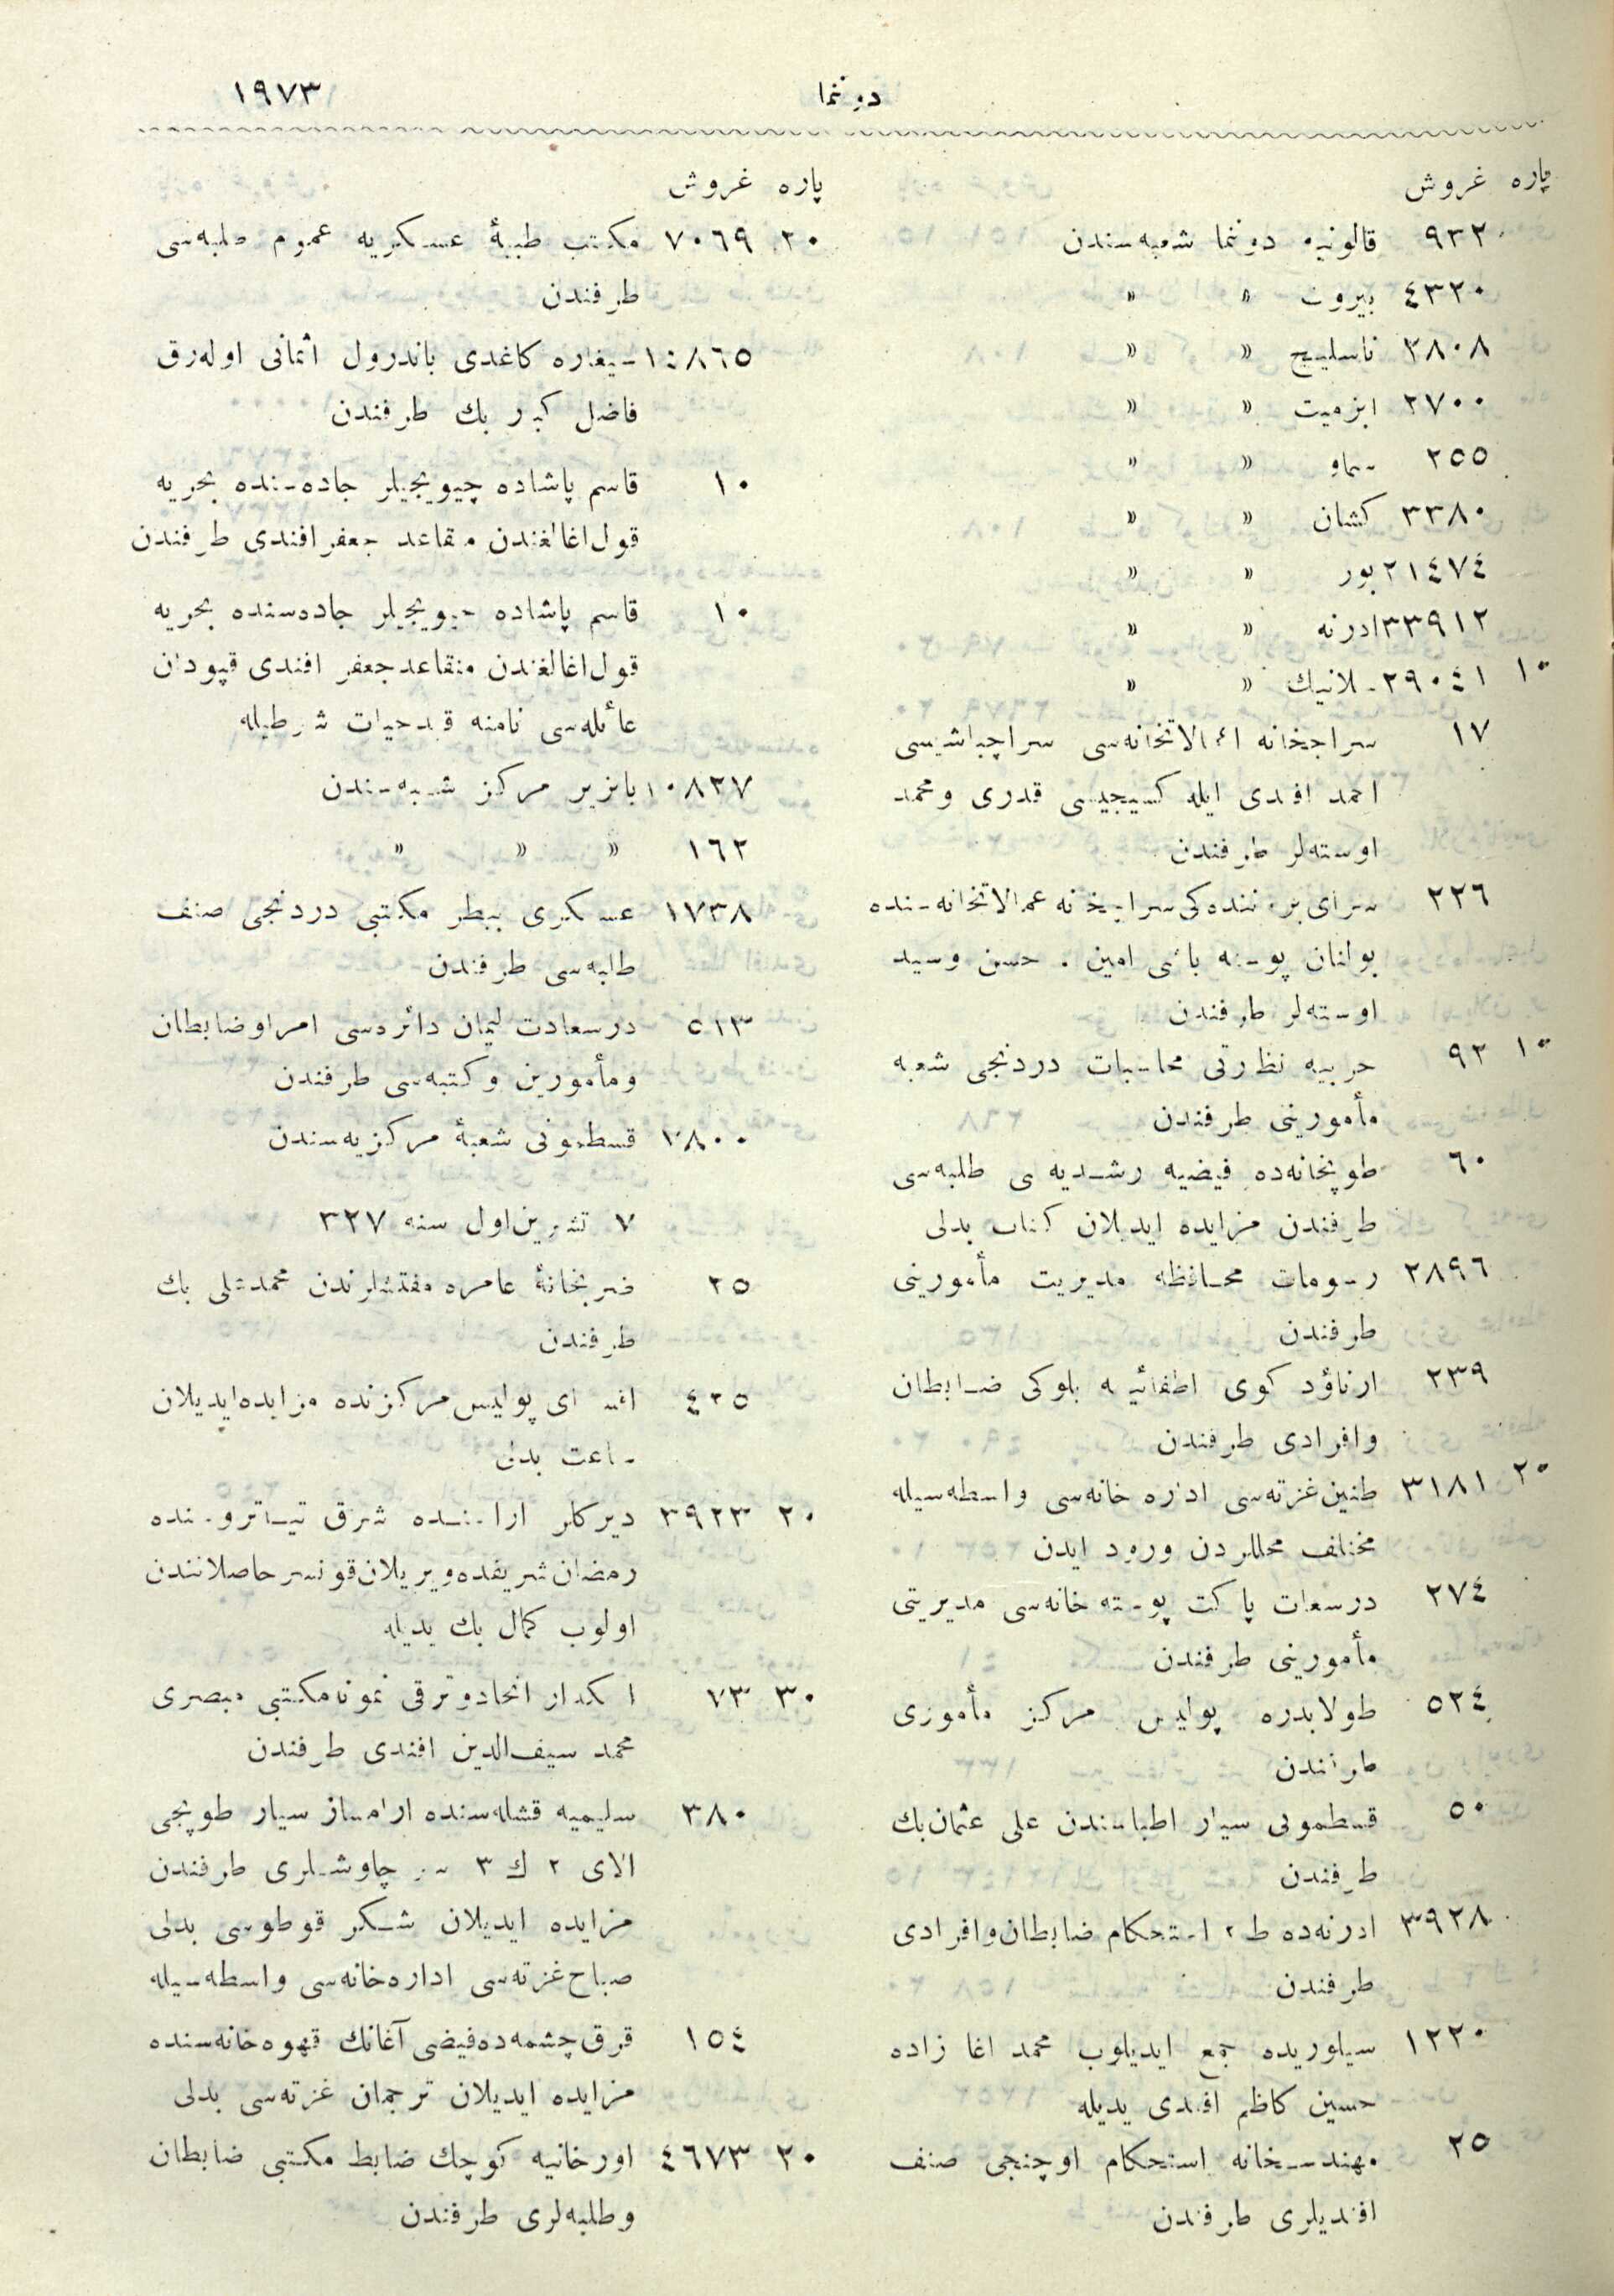 دوننما ١٩٧٣
پاره غروش
٩٣٢ قالونیه دوننما شعبه‌سندن
٤٣٢٠ بیروت » »
٣٨٠٨ ناسلیج » »
٢٧٠٠ ازمیت » »
٢٥٥ » »
٣٣٨٠ کشان » »
٢١٤٧٤ بور » »
٣٣٩١٢ ادرنه » »
١٠ ٢٩٠٤١ سلانیك » »
١٧ سراجخانه اعمالاتخانه‌سی سراچباشیسی
احمد افندی ایله کسیجیسی قدری و محمد
اوسته‌لر طرفندن
٢٢٦ سرای برونندەکی سراجخانه عمالاتخانه‌سنده
بولنان پوسته باشی امین ، حسن وسید
اوسته‌لر طرفندن
١٠ ٩٢ حربیه نظارتی محاسبات دردنجی شعبه
مأمورینی طرفندن
٦٠ طوپخانه‌ده فیضیه رشدیه‌سی طلبه‌سی
طرفندن مزایده ایدیلان کتاب بدلی
٢٨٩٦ رسومات محافظه مدیریت مأمورینی
طرفندن
٢٣٩ ارناؤد کوی اطفائیه بلوکی ضابطان
وافرادی طرفندن
٢٠ ٣١٨١ طنین غزته‌سی اداره خانه‌سی واسطه‌سیله
مختلف محللردن ورود ایدن
٢٧٤ درسعات پاکت پوسته خانه‌سی مدیریتی
مأمورینی طرفندن
٥٢٤ طولابدره پولیس مرکز مأموری
طرفندن
٥٠ قسطمونی سیار اطباسندن علی عثمان بك
طرفندن
٣٩٢٨ ادرنه‌ده ط ٢ استحکام ضابطان وافرادی
طرفندن
١٢٢٠ سیلوریده جمع ایدیلوب محمد اغا زاده
حسین کاظم افندی یدیله
٢٥ مهندسخانه استحکام اوچنجی صنف
افندیلری طرفندن
پاره غروش
٢٠ ٧٠٦٩ مکتب طبیهٔ عسکریه عموم طلبه‌سی
طرفندن
١٤٨٦٥ سیغاره کاغدی باندرول اثمانی اوله‌رق
فاضل کبیر بك طرفندن
١٠ قاسم پاشاده چیویجیلر جاده‌سنده بحریه
قول‌اغالغندن متقاعد جعفر افندی طرفندن
١٠ قاسم پاشاده چیویجیلر جاده‌سنده بحریه
قول‌اغالغندن متقاعد جعفر افندی قپودان
عائله‌سی نامنه قیدحیات شرطیله
١٠٨٢٧ بانزیر مرکز شعبه‌سندن
١٦٢ » » »
١٧٣٨ عسکری بیطر مکتبی دردنجی صنف
طلبه‌سی طرفندن
٥١٣ درسعادت لیمان دائره‌سی امرا وضابطان
ومأمورین وکتبه‌سی طرفندن
٢٨٠٠ قسطمونی شعبهٔ مرکزیه‌سندن
٧ تشرین‌اول سنه ٣٢٧
٢٥ ضربخانهٔ عامره مفتشلرندن محمدعلی بك
طرفندن
٤٢٥ پولیس مرکزنده مزایده ایدیلان
ساعت بدلی
٢٠ ٣٩٢٣ دیرکلر اراسنده شرق تیاتروسنده
رمضان شریفده ویریلان قونسر حاصلاتندن
اولوب کمال بك یدیله
٣٠ ٧٣ اسکدار اتحاد و ترقی نمونه مکتبی مبصری
محمد سیف‌الدین افندی طرفندن
٣٨٠ سلیمیه قشله‌سنده ارامساز سیار طوپجی
الای ٢ ك ٣ چاوشلری طرفندن
مزایده ایدیلان شکر قوطوسی بدلی
صباح غزته‌سی اداره‌خانه‌سی واسطه‌سیله
١٥٤ قرق چشمه‌ده فیضی آغانك قهوه‌خانه‌سنده
مزایده ایدیلان ترجمان غزته‌سی بدلی
٢٠ ٤٦٧٣ اورخانیه کوچك ضابط مکتبی ضابطان
وطلبه‌لری طرفندن